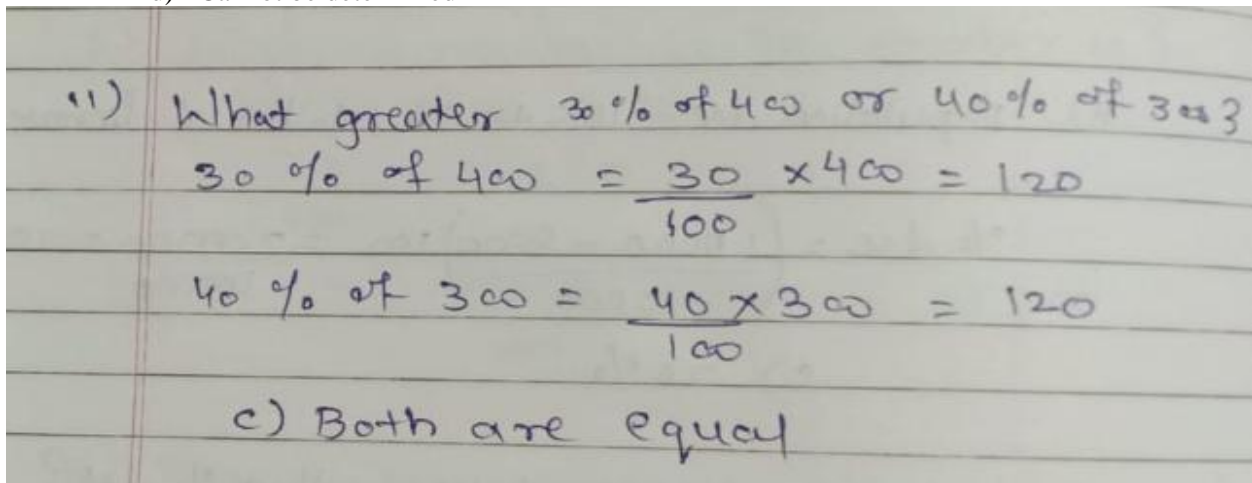 11) What greater 30 % of 400 or 40 % of 300?
30 % of 400 = 30 × 400 = 120
100
40 % of 300 = 40 × 300 = 120
100
c) Both are equal